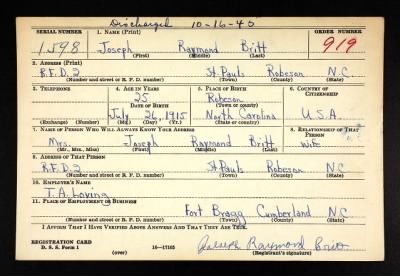 Discharged 10-16-45
SERIAL NUMBER 1. NAME (Print) ORDER NUMBER
1598 Joseph Raymond Britt 919
(First) (Middle) (Last)
2. ADDRESS (Print)
R.F.D. 2 St. Pauls Robeson N.C.
(Number and street or R. F. D. number) (Town) (County) (State)
3. TELEPHONE 4. AGE IN YEARS 5. PLACE OF BIRTH 6. COUNTRY OF CITIZENSHIP
25 Robeson
DATE OF BIRTH (Town or county)
July 26, 1915 North Carolina U.S.A.
(Exchange) (Number) (Mo.) (Day) (Yr.) (State or country)
7. NAME OF PERSON WHO WILL ALWAYS KNOW YOUR ADDRESS 8. RELATIONSHIP OF THAT PERSON
Mrs. Joseph Raymond Britt Wife
(Mr., Mrs., Miss) (First) (Middle) (Last)
9. ADDRESS OF THAT PERSON
R.F.D. 2 St. Pauls Robeson N.C.
(Number and street or R. F. D. number) (Town) (County) (State)
10. EMPLOYER'S NAME
T. A. Loving
11. PLACE OF EMPLOYMENT OR BUSINESS
Fort Bragg Cumberland N.C.
(Number and street or R. F. D. number) (Town) (County) (State)
I AFFIRM THAT I HAVE VERIFIED ABOVE ANSWERS AND THAT THEY ARE TRUE.
REGISTRATION CARD
D. S. S. Form 1 16-17105 Joseph Raymond Britt
(over) (Registrant's signature)